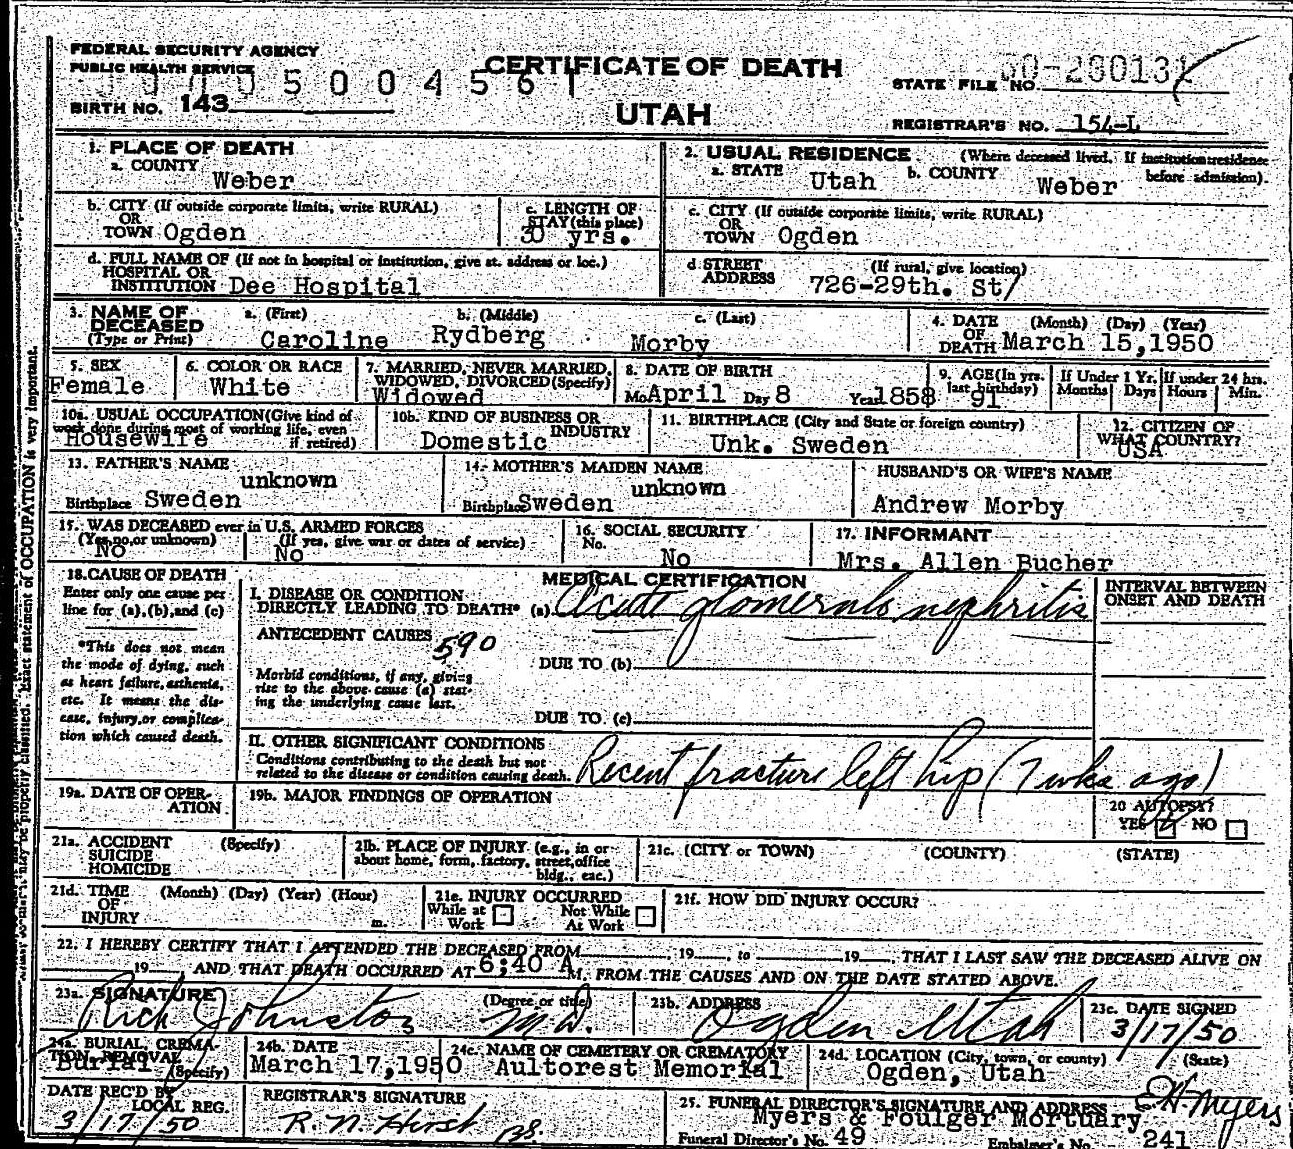 FEDERAL SECURITY AGENCY
PUBLIC HEALTH SERVICE
500456
BIRTH NO. 143
CERTIFICATE OF DEATH
UTAH
STATE FILE NO.
REGISTRAR'S NO. 154-L
1. PLACE OF DEATH
a. COUNTY Weber
b. CITY (If outside corporate limits, write RURAL)
OR
TOWN Ogden
c. LENGTH OF
STAY (this place)
30 yrs.
d. FULL NAME OF (If not in hospital or institution, give st. address or loc.)
HOSPITAL OR
INSTITUTION Dee Hospital
2. USUAL RESIDENCE (Where deceased lived. If institution: residence
before admission).
a. STATE Utah b. COUNTY Weber
c. CITY (If outside corporate limits, write RURAL)
OR
TOWN Ogden
d. STREET (If rural, give location)
ADDRESS 726-29th. St/
3. NAME OF a. (First) b. (Middle) c. (Last)
DECEASED
(Type or Print) Caroline Rydberg Morby
4. DATE (Month) (Day) (Year)
OF
DEATH March 15,1950
5. SEX
Female
6. COLOR OR RACE
White
7. MARRIED, NEVER MARRIED,
WIDOWED, DIVORCED (Specify)
Widowed
8. DATE OF BIRTH
Mo April Day 8 Year 1858
9. AGE (In yrs.
last birthday)
91
If Under 1 Yr.
Months Days
If under 24 hrs.
Hours Min.
10a. USUAL OCCUPATION (Give kind of
work done during most of working life, even
if retired)
Housewife
10b. KIND OF BUSINESS OR
INDUSTRY
Domestic
11. BIRTHPLACE (City and State or foreign country)
Unk. Sweden
12. CITIZEN OF
WHAT COUNTRY?
USA
13. FATHER'S NAME
unknown
Birthplace Sweden
14. MOTHER'S MAIDEN NAME
unknown
Birthplace Sweden
HUSBAND'S OR WIFE'S NAME
Andrew Morby
15. WAS DECEASED ever in U.S. ARMED FORCES
(Yes, no, or unknown) (If yes, give war or dates of service)
No No
16. SOCIAL SECURITY
No.
No
17. INFORMANT
Mrs. Allen Bucher
18. CAUSE OF DEATH
Enter only one cause per
line for (a), (b), and (c)
*This does not mean
the mode of dying, such
as heart failure, asthenia,
etc. It means the dis-
ease, injury, or complica-
tion which caused death.
MEDICAL CERTIFICATION
I. DISEASE OR CONDITION
DIRECTLY LEADING TO DEATH* (a) Acute glomerulo nephritis
ANTECEDENT CAUSES 590
DUE TO (b)
Morbid conditions, if any, giving
rise to the above cause (a) stat-
ing the underlying cause last.
DUE TO (c)
INTERVAL BETWEEN
ONSET AND DEATH
II. OTHER SIGNIFICANT CONDITIONS
Conditions contributing to the death but not
related to the disease or condition causing death. Recent fracture left hip (7 wks ago)
19a. DATE OF OPER-
ATION
19b. MAJOR FINDINGS OF OPERATION
20 AUTOPSY?
YES NO
21a. ACCIDENT (Specify)
SUICIDE
HOMICIDE
21b. PLACE OF INJURY (e.g., in or
about home, form, factory, street, office
bldg., etc.)
21c. (CITY or TOWN) (COUNTY) (STATE)
21d. TIME (Month) (Day) (Year) (Hour)
OF
INJURY m.
21e. INJURY OCCURRED
While at Not While
Work At Work
21f. HOW DID INJURY OCCUR?
22. I HEREBY CERTIFY THAT I ATTENDED THE DECEASED FROM 19 to 19 THAT I LAST SAW THE DECEASED ALIVE ON
19 AND THAT DEATH OCCURRED AT 6:40 A M. FROM THE CAUSES AND ON THE DATE STATED ABOVE.
23a. SIGNATURE (Degree or title)
Rich Johnston M.D.
23b. ADDRESS
Ogden Utah
23c. DATE SIGNED
3/17/50
24a. BURIAL, CREMA-
TION, REMOVAL
Burial (Specify)
24b. DATE
March 17,1950
24c. NAME OF CEMETERY OR CREMATORY
Aultorest Memorial
24d. LOCATION (City, town, or county) (State)
Ogden, Utah
DATE REC'D BY
LOCAL REG.
3/17/50
REGISTRAR'S SIGNATURE
R. N. Hirst
25. FUNERAL DIRECTOR'S SIGNATURE AND ADDRESS E H Myers
Myers & Foulger Mortuary
Funeral Director's No. 49 Embalmer's No. 241
Exact statement of OCCUPATION is very important.